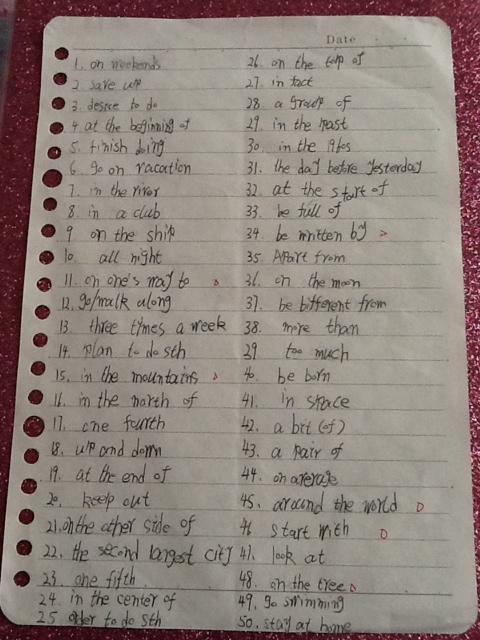 Date
1. on weekends
2. save up
3. desice to do
4. at the beginning of
5. finish doing
6. go on vacation
7. in the river
8. in a club
9 on the ship
10. all night
11. on one's way to
12. go/walk along
13. three times a week
14. plan to do sth
15. in the mountains
16. in the north of
17. one fourth
18. up and down
19. at the end of
20. keep out
21. on the other side of
22. the second largest city
23. one fifth
24. in the center of
25 order to do sth
26. on the top of
27. in fact
28. a group of
29. in the past
30. in the 196s
31. the day before yesterday
32. at the start of
33. be full of
34. be written by
35. Apart from
36. on the moon
37. be bifferent from
38. more than
39 too much
40. be born
41. in space
42. a bit (of)
43. a pair of
44. on average
45. around the world
46 start with
47. look at
48. on the tree
49. go swimming
50. stay at home